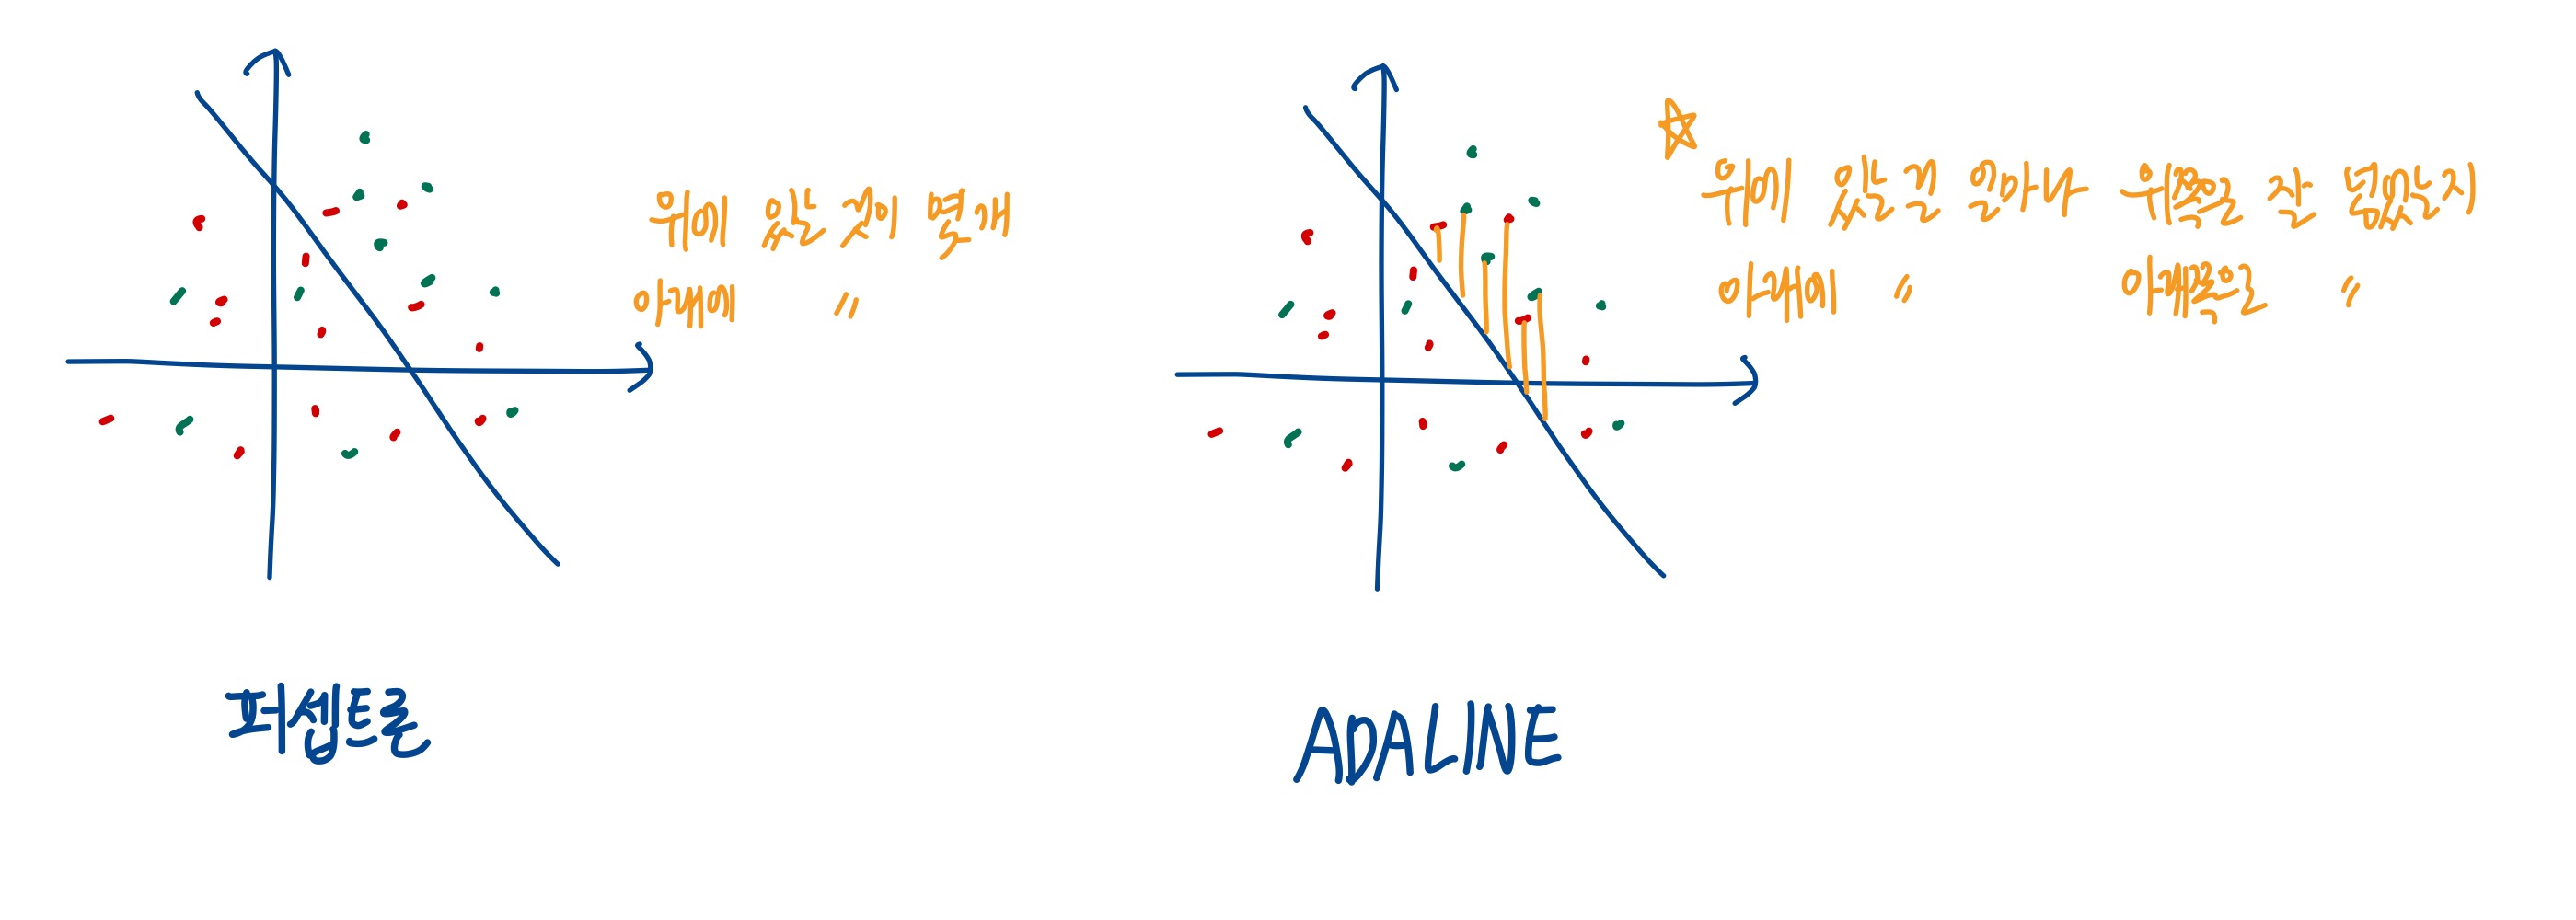 위에 있는 것이 몇개
아래에 〃
퍼셉트론
위에 있는걸 얼마나 위쪽을 잘 넘었는지
아래에 〃 아래쪽으로 〃
ADALINE